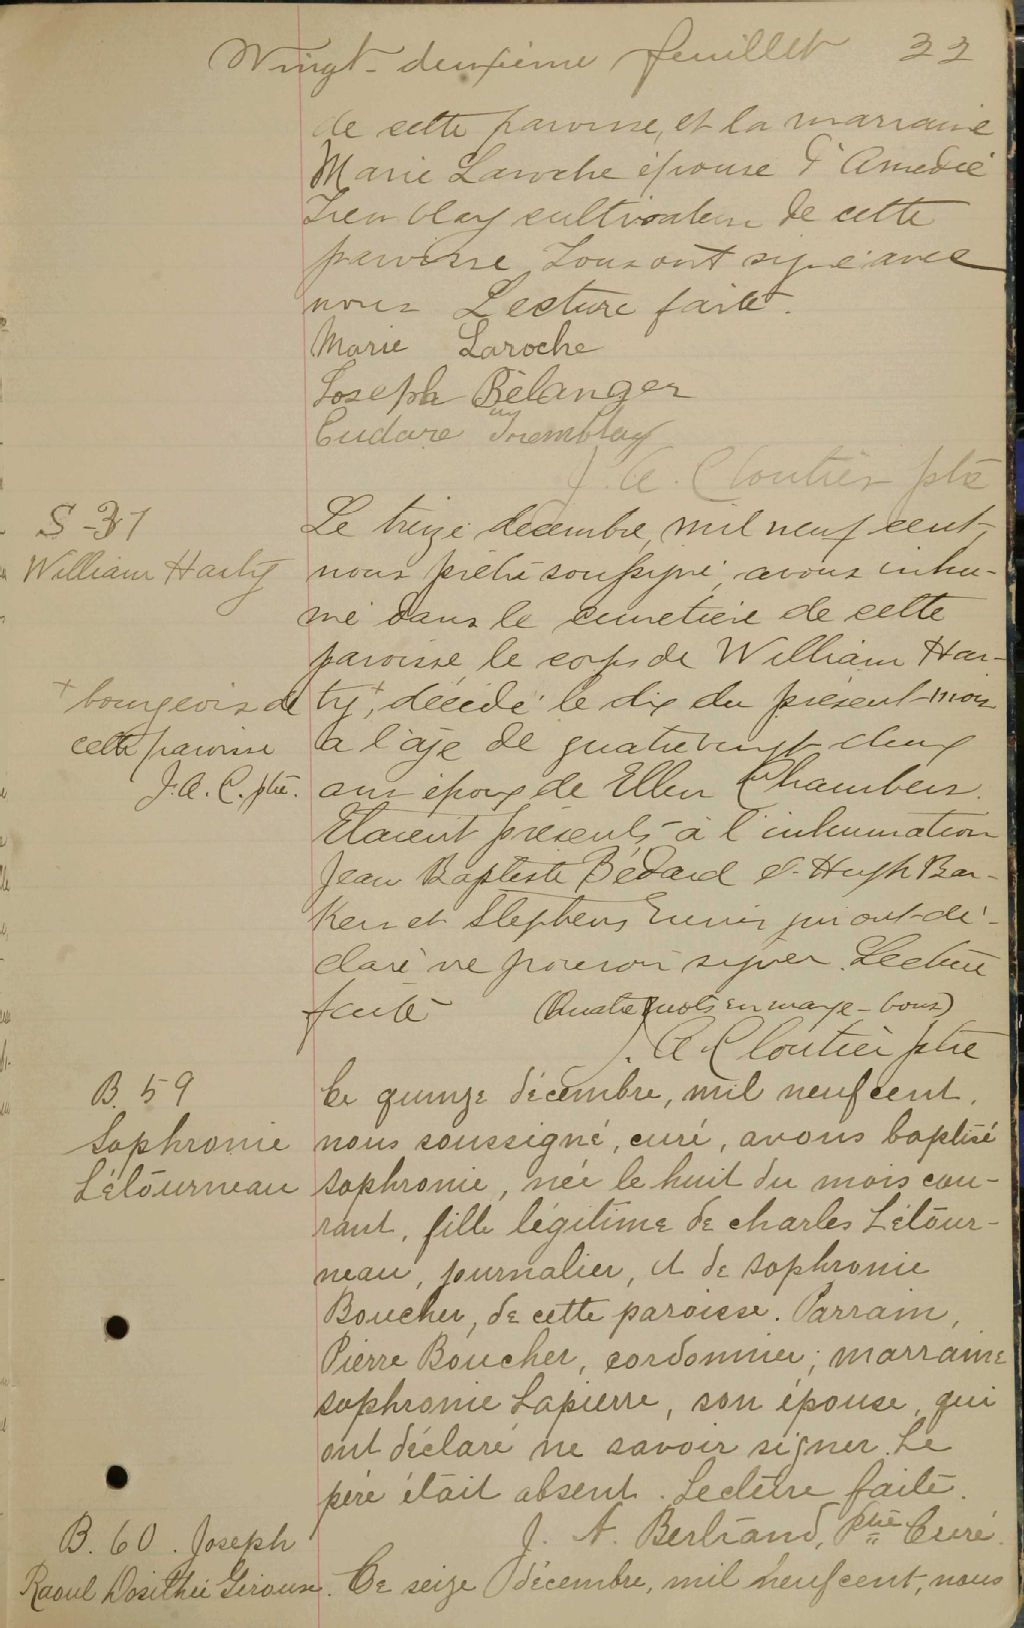 Vingt-deuxième feuillet 22
de cette paroisse, et la marraine
Marie Laroche épouse d'Amédée
Tremblay cultivateur de cette
paroisse Tous ont signé avec
nous Lecture faite.
Marie Laroche
Joseph Bélanger
Tremblay
J. A. Cloutier ptre
S-31
William Harty
Le treize décembre, mil neuf cent,
nous prêtre soussigné, avons inhu-
mé dans le cimetière de cette
paroisse, le corps de William Har-
ty+, décédé le dix du présent mois
+ bourgeois de
cette paroisse
J. A. C. ptre.
a l'âge de quatrevingt deux
ans époux de Ellen Chambers.
Etaient présents à l'inhumation
Jean Baptiste Bédard & Hugh Bar-
ker et Stephens qui ont dé-
claré ne pouvoir signer. Lecture
faite (Quatre mots en marge - bons)
J. A. Cloutier ptre
B. 59
Sophronie
Létourneau
Ce quinze décembre, mil neuf cent,
nous soussigné, curé, avons baptisé
Sophronie, née le huit du mois cou-
rant, fille légitime de Charles Létour-
neau, journalier, et de Sophronie
Boucher, de cette paroisse. Parrain,
Pierre Boucher, cordonnier; marraine
Sophronie Lapierre, son épouse, qui
ont déclaré ne savoir signer. Le
père était absent. Lecture faite.
J. A. Bertrand, Ptre Curé.
B. 60. Joseph
Raoul Dosithée Girouse.
Ce seize décembre, mil neuf cent, nous